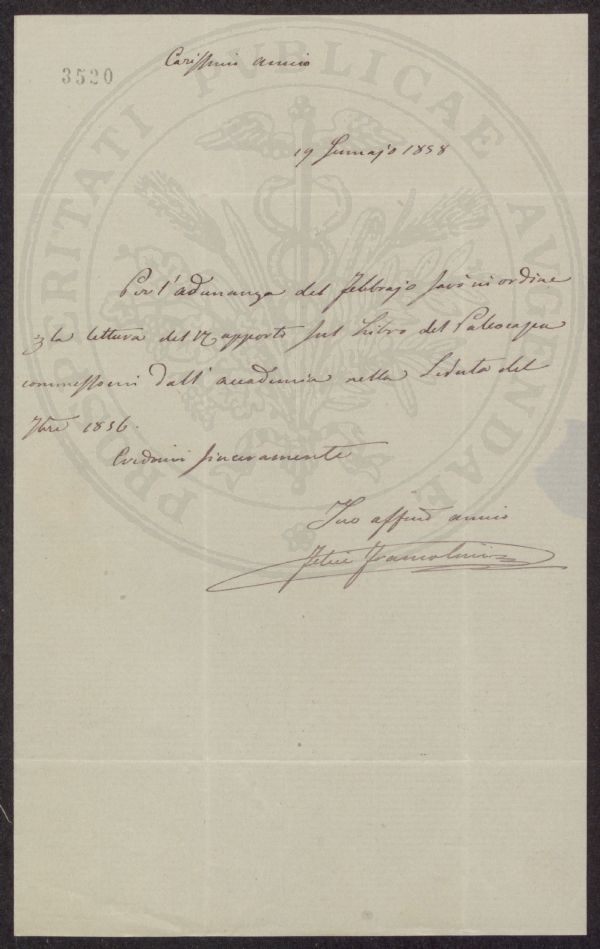 3520
Carissimo amico
19 Gennajo 1858
Per l'adunanza del febbrajo sarò in ordine
la lettura del Rapporto sul Libro del Paleocapa
commessomi dall'accademia nella Seduta del
7bre 1856.
Credimi sinceramente
Tuo affmo amico
Felice
PROSPERITATI PVBLICAE AVGENDAE